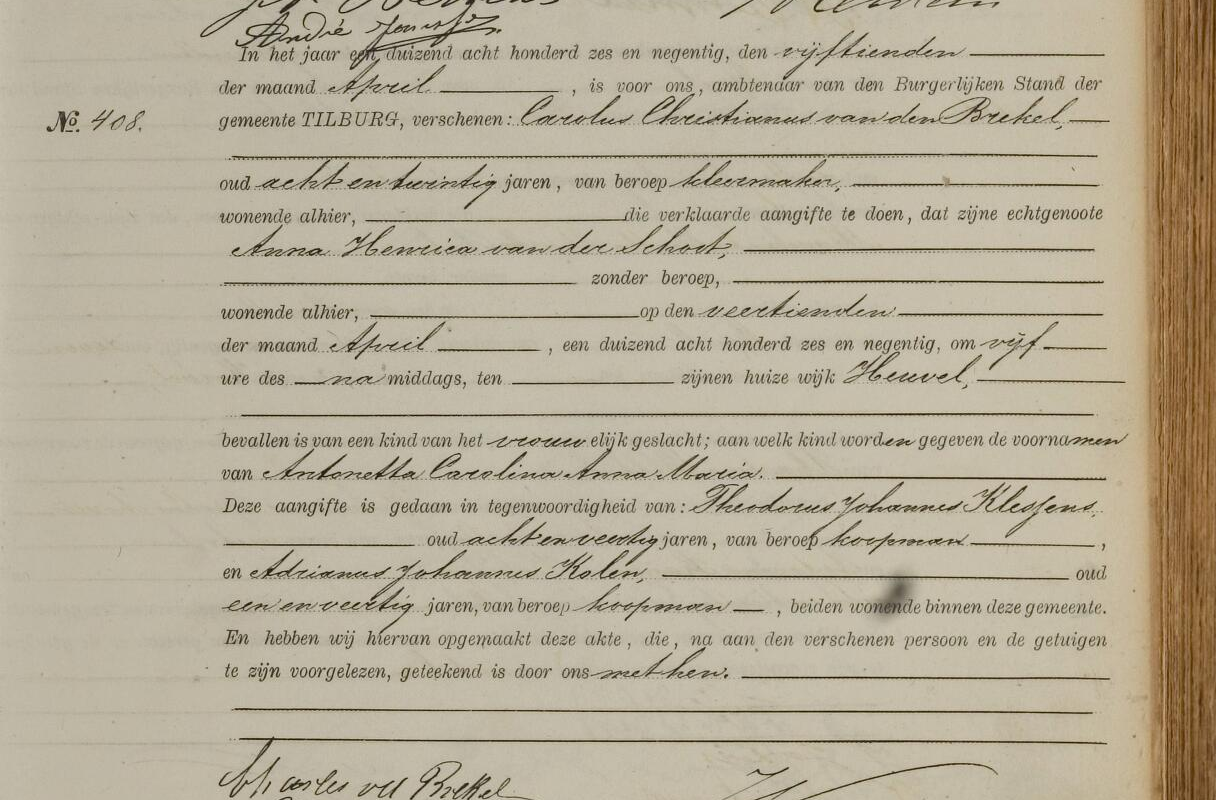 André Janssz.
In het jaar een duizend acht honderd zes en negentig, den vijftienden
der maand April, is voor ons, ambtenaar van den Burgerlijken Stand der
No. 408. gemeente TILBURG, verschenen: Carolus Christianus van den Brekel,
oud acht en twintig jaren, van beroep kleermaker,
wonende alhier, die verklaarde aangifte te doen, dat zijne echtgenoote
Anna Henrica van der Schoot,
zonder beroep,
wonende alhier, op den veertienden
der maand April, een duizend acht honderd zes en negentig, om vijf
ure des na middags, ten zijnen huize wijk Heuvel,
bevallen is van een kind van het vrouwelijk geslacht; aan welk kind worden gegeven de voornamen
van Antonetta Carolina Anna Maria.
Deze aangifte is gedaan in tegenwoordigheid van: Theodorus Johannes Klessens,
oud acht en veertig jaren, van beroep koopman,
en Adrianus Johannes Kolen, oud
een en veertig jaren, van beroep koopman, beiden wonende binnen deze gemeente.
En hebben wij hiervan opgemaakt deze akte, die, na aan den verschenen persoon en de getuigen
te zijn voorgelezen, geteekend is door ons met hen.
Charles vd Brekel